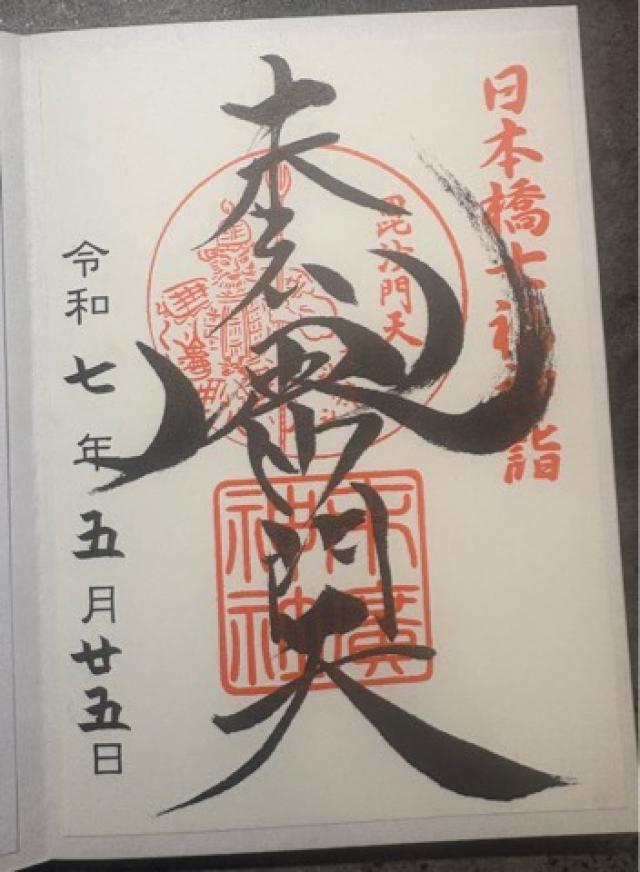 日本橋七福神詣
毘沙門天
毘沙門天
末廣
神社
令和七年五月廿五日